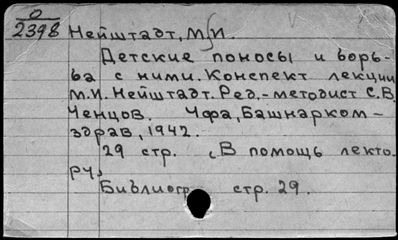 0
2398
Нейштадт, М.И.
Детские поносы и борь-
ба с ними. Конспект лекции
М.И. Нейштадт. Ред.-методист С.В.
Ченцов. Уфа, Башнарком-
здрав, 1942.
29 стр. (В помощь лекто-
ру)
Библиогр. стр. 29.